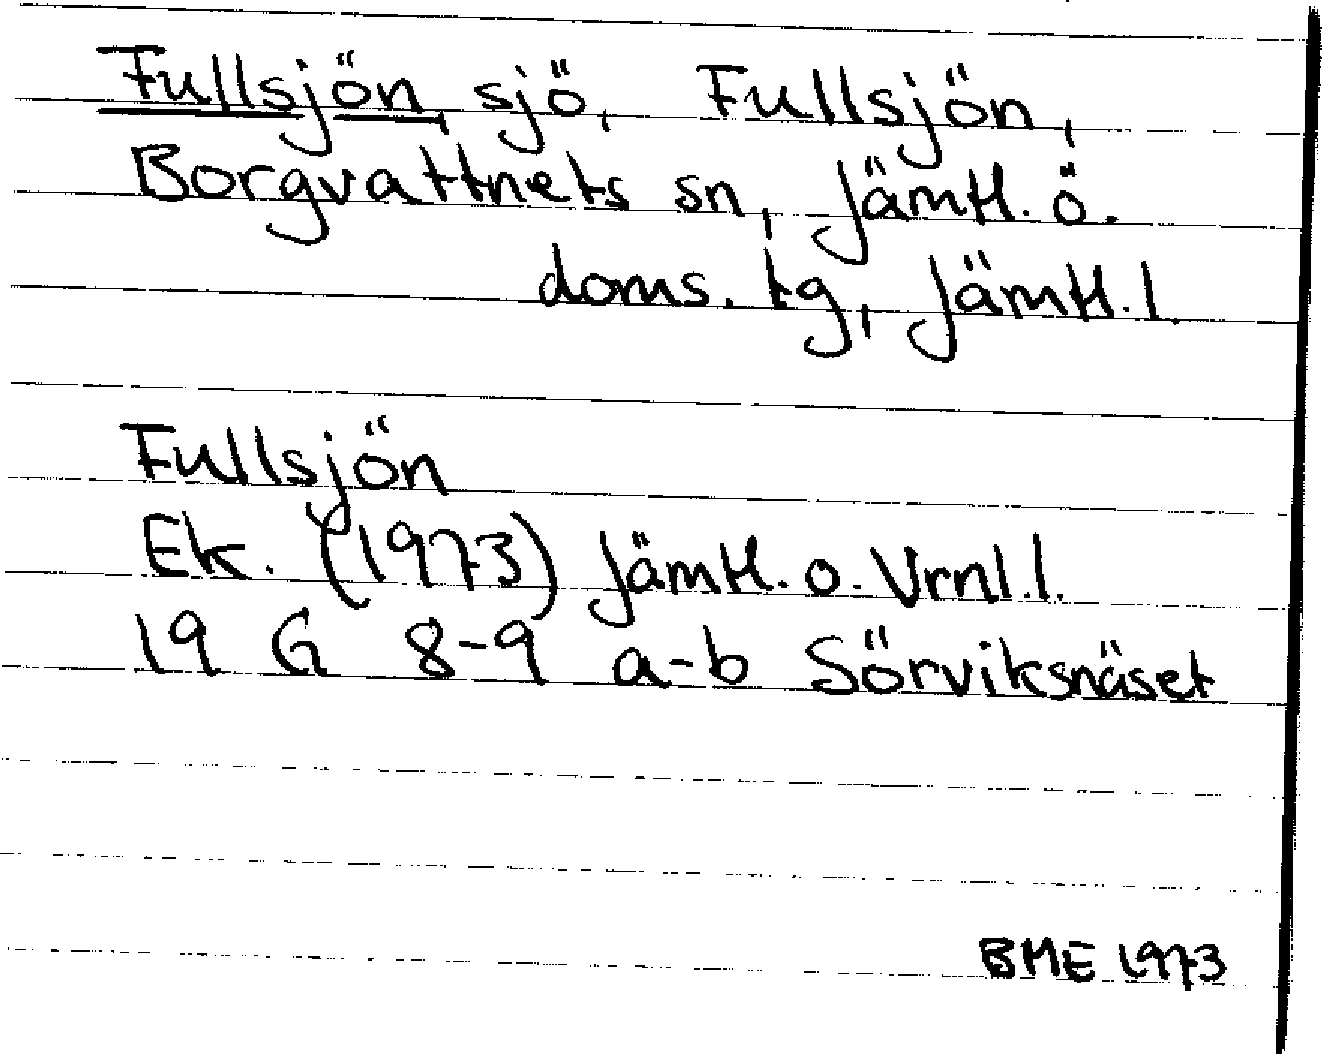 Fullsjön, sjö, Fullsjön,
Borgvattnets sn, Jämtl. ö.
doms. tg, Jämtl. l.
Fullsjön
Ek. (1973) Jämtl. o. Vrnl. l.
19 G 8-9 a-b Sörviksnäset
BME 1973